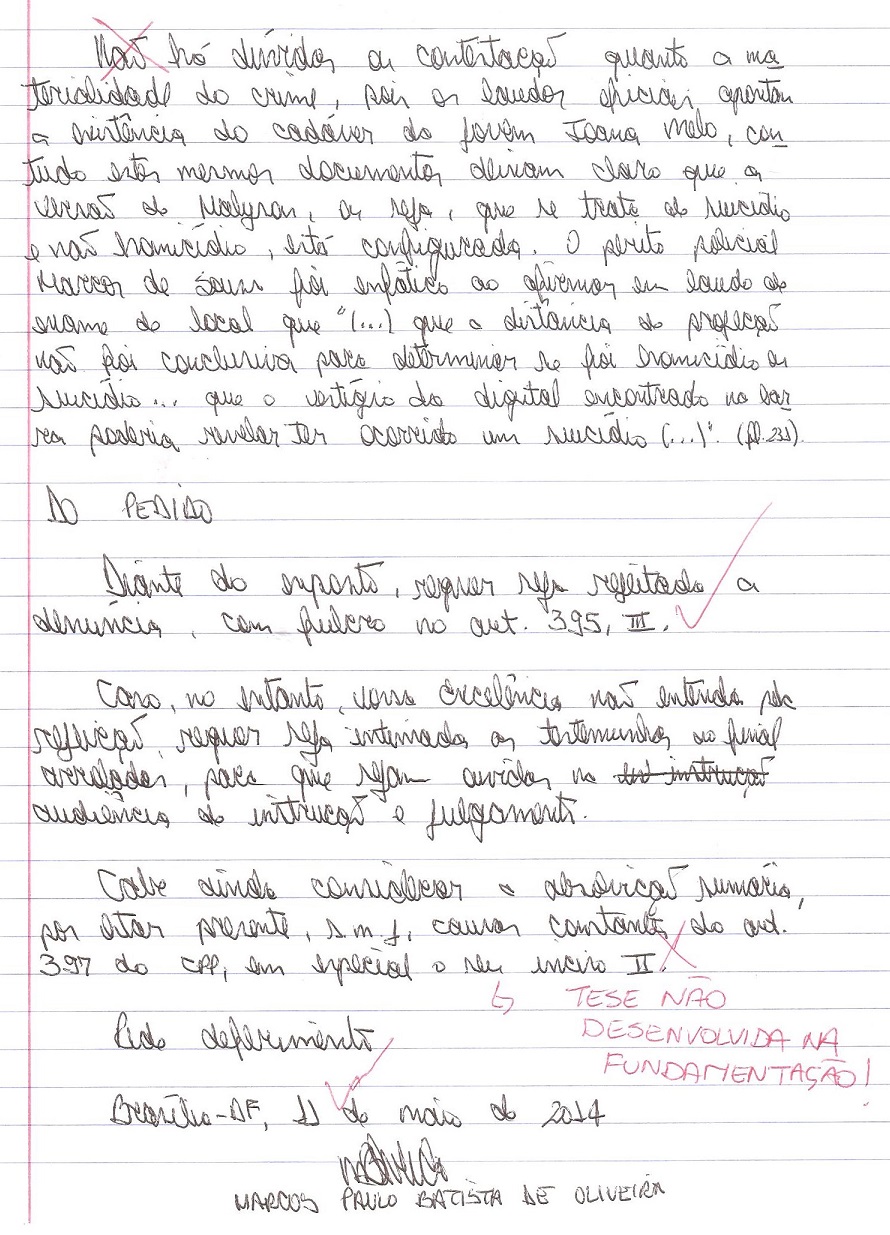 Não há dúvidas ou contestação quanto a ma
terialidade do crime, pois os laudos oficiais apontam
a existência do cadáver da jovem Joana Melo, con
tudo estes mesmos documentos deixam claro que a
versão de, ou seja, que se trata de suicídio
e não homicídio, está configurada. O perito policial
Marcos de Souza foi enfático ao afirmar em laudo de
exame de local que "(...) que a distância de projeção
não foi conclusiva para determinar se foi homicídio ou
suicídio... que o vestígio da digital encontrado na bar
ra poderia revelar ter ocorrido um suicídio (...)". (fl. 231).
DO PEDIDO
Diante do exposto, requer seja rejeitada a
denúncia, com fulcro no art. 395, III.
Caso, no entanto, vossa Excelência não entenda pela
rejeição, requer seja intimadas as testemunhas ao final
arroladas, para que sejam ouvidas na instrução
audiência de instrução e julgamento.
Cabe ainda considerar a absolvição sumária,
por estar presente, s.m.j, causas constantes do art.
397 do CPP, em especial o seu inciso II.
↳ TESE NÃO
DESENVOLVIDA NA
FUNDAMENTAÇÃO!
Pede deferimento
Brasília-DF, 11 de maio de 2014
MARCOS PAULO BATISTA DE OLIVEIRA